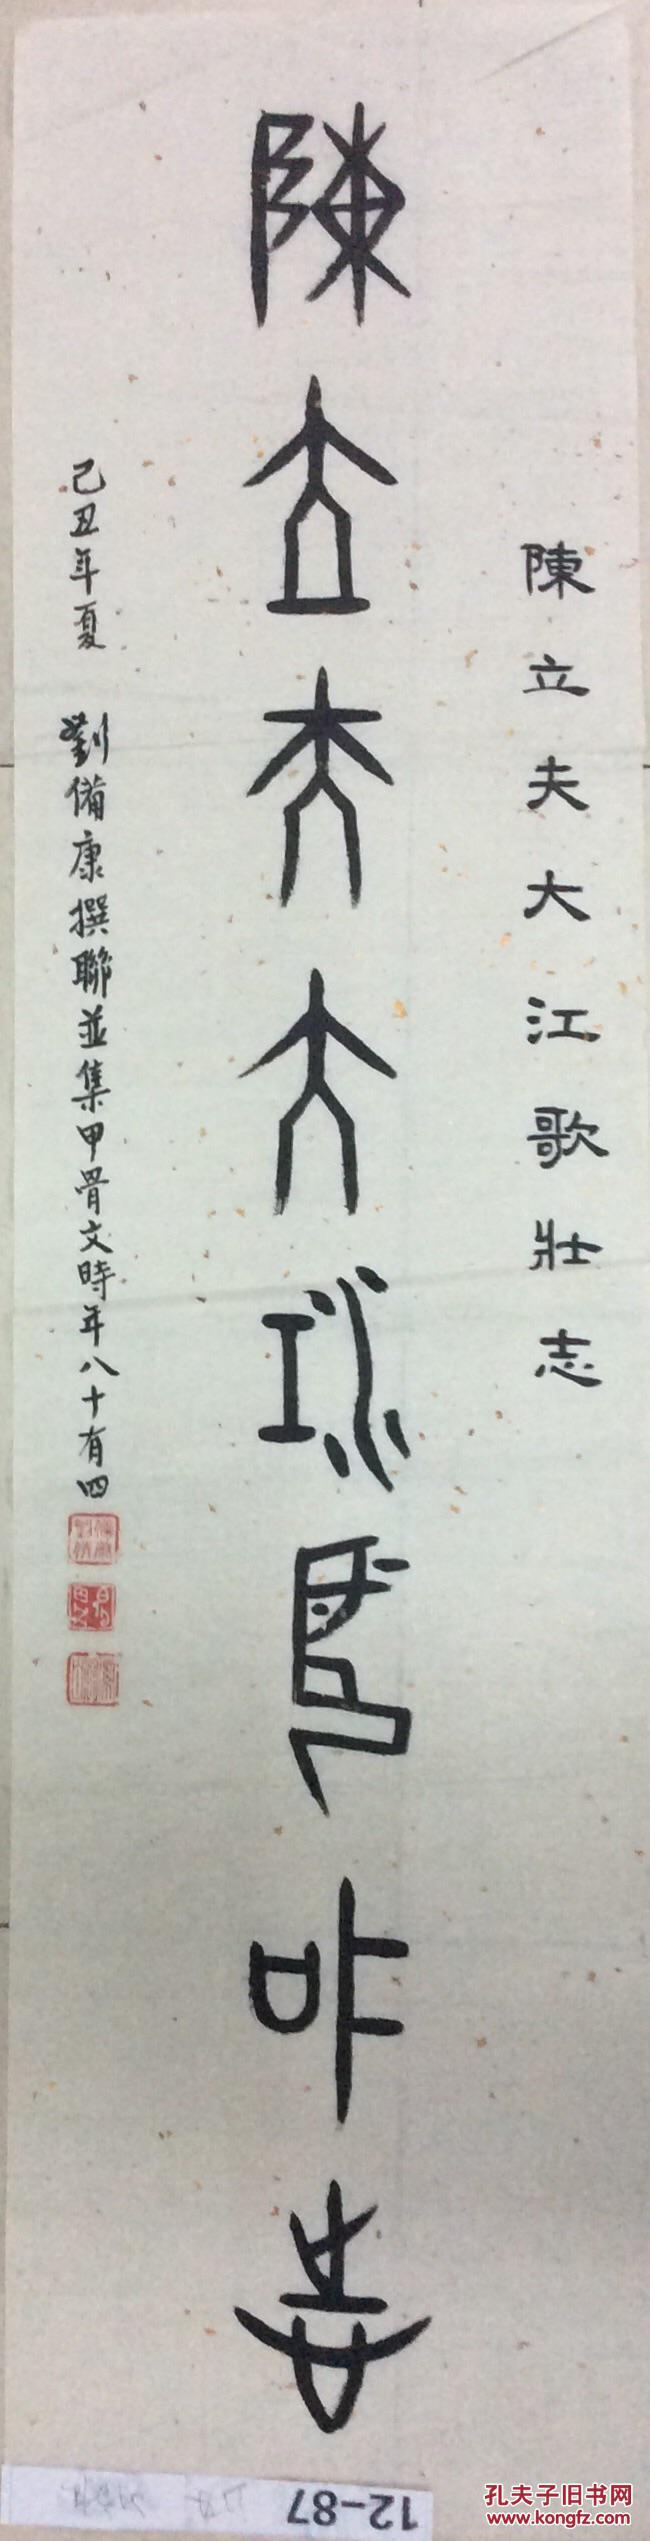 陳立夫大江歌壯志
陳立夫大江歌壯志
己丑年夏 劉備康撰聯並集甲骨文時年八十有四
12-87
孔夫子旧书网
www.kongfz.com